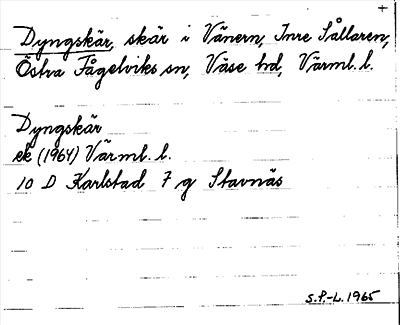 +
Dyngskär, skär i Vänern, Inre Sållaren,
Östra Fågelviks sn, Väse hd, Värml. l.
Dyngskär
ek (1964) Värml. l.
10 D Karlstad 7 g Stavnäs
S.P.-L. 1965